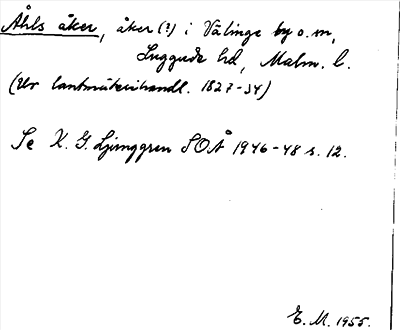 Åhls åker, åker (?) i Välinge by o. m,
Luggude hd, Malm. l.
(Ur lantmäterihandl. 1827-34)
Se K. G. Ljunggren SOÅ 1946-48 s. 12.
E. M. 1955.